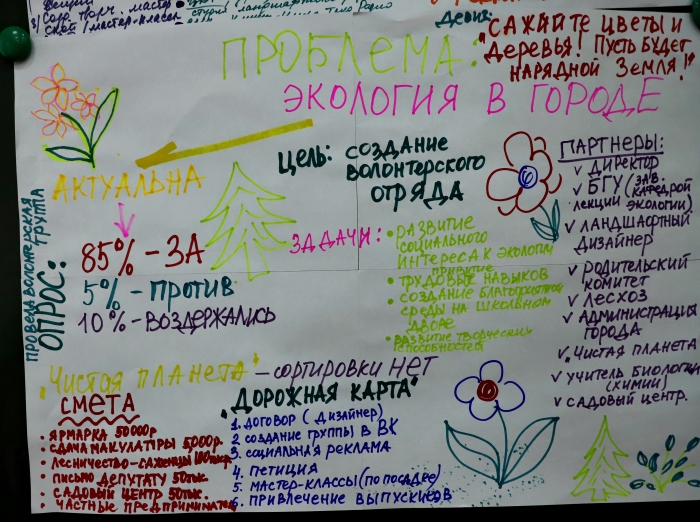 3/ Соц. творч. мастер
Девиз:
"САЖАЙТЕ ЦВЕТЫ И
ДЕРЕВЬЯ! ПУСТЬ БУДЕТ
НАРЯДНОЙ ЗЕМЛЯ!"
ПРОБЛЕМА:
ЭКОЛОГИЯ В ГОРОДЕ
АКТУАЛЬНА
85% - ЗА
5% - ПРОТИВ
10% - ВОЗДЕРЖАЛИСЬ
ПРОВЕЛА ВОЛОНТЕРСКАЯ
ГРУППА
ОПРОС:
ЦЕЛЬ: СОЗДАНИЕ
ВОЛОНТЕРСКОГО
ОТРЯДА
ЗАДАЧИ:
• РАЗВИТИЕ
СОЦИАЛЬНОГО
ИНТЕРЕСА К ЭКОЛОГИИ
• ТРУДОВЫЕ НАВЫКОВ
• СОЗДАНИЕ
СРЕДЫ НА ШКОЛЬНОМ
ДВОРЕ
• РАЗВИТИЕ ТВОРЧЕСКИХ
СПОСОБНОСТЕЙ
ПАРТНЕРЫ:
✓ ДИРЕКТОР
✓ БГУ (ЗАВ.
КАФЕДРОЙ
ЛЕКЦИИ ЭКОЛОГИИ)
✓ ЛАНДШАФТНЫЙ
ДИЗАЙНЕР
✓ РОДИТЕЛЬСКИЙ
КОМИТЕТ
✓ ЛЕСХОЗ
✓ АДМИНИСТРАЦИЯ
ГОРОДА
✓ "ЧИСТАЯ ПЛАНЕТА
✓ УЧИТЕЛЬ БИОЛОГИИ
(ХИМИИ)
✓ САДОВЫЙ ЦЕНТР.
"ЧИСТАЯ ПЛАНЕТА" - СОРТИРОВКИ НЕТ
СМЕТА
• ЯРМАРКА 50000р
• СДАЧА МАКУЛАТУРЫ 5000р.
• ЛЕСНИЧЕСТВО - САЖЕНЦЫ
• ПИСЬМО ДЕПУТАТУ 50тыс.
• САДОВЫЙ ЦЕНТР 50тыс.
• ЧАСТНЫЕ
"ДОРОЖНАЯ КАРТА"
1. ДОГОВОР (ДИЗАЙНЕР)
2 СОЗДАНИЕ ГРУППЫ В ВК
3. СОЦИАЛЬНАЯ РЕКЛАМА
4. ПЕТИЦИЯ
5. МАСТЕР-КЛАССЫ (ПО ПОСАДКЕ)
6. ПРИВЛЕЧЕНИЕ ВЫПУСКНИКОВ